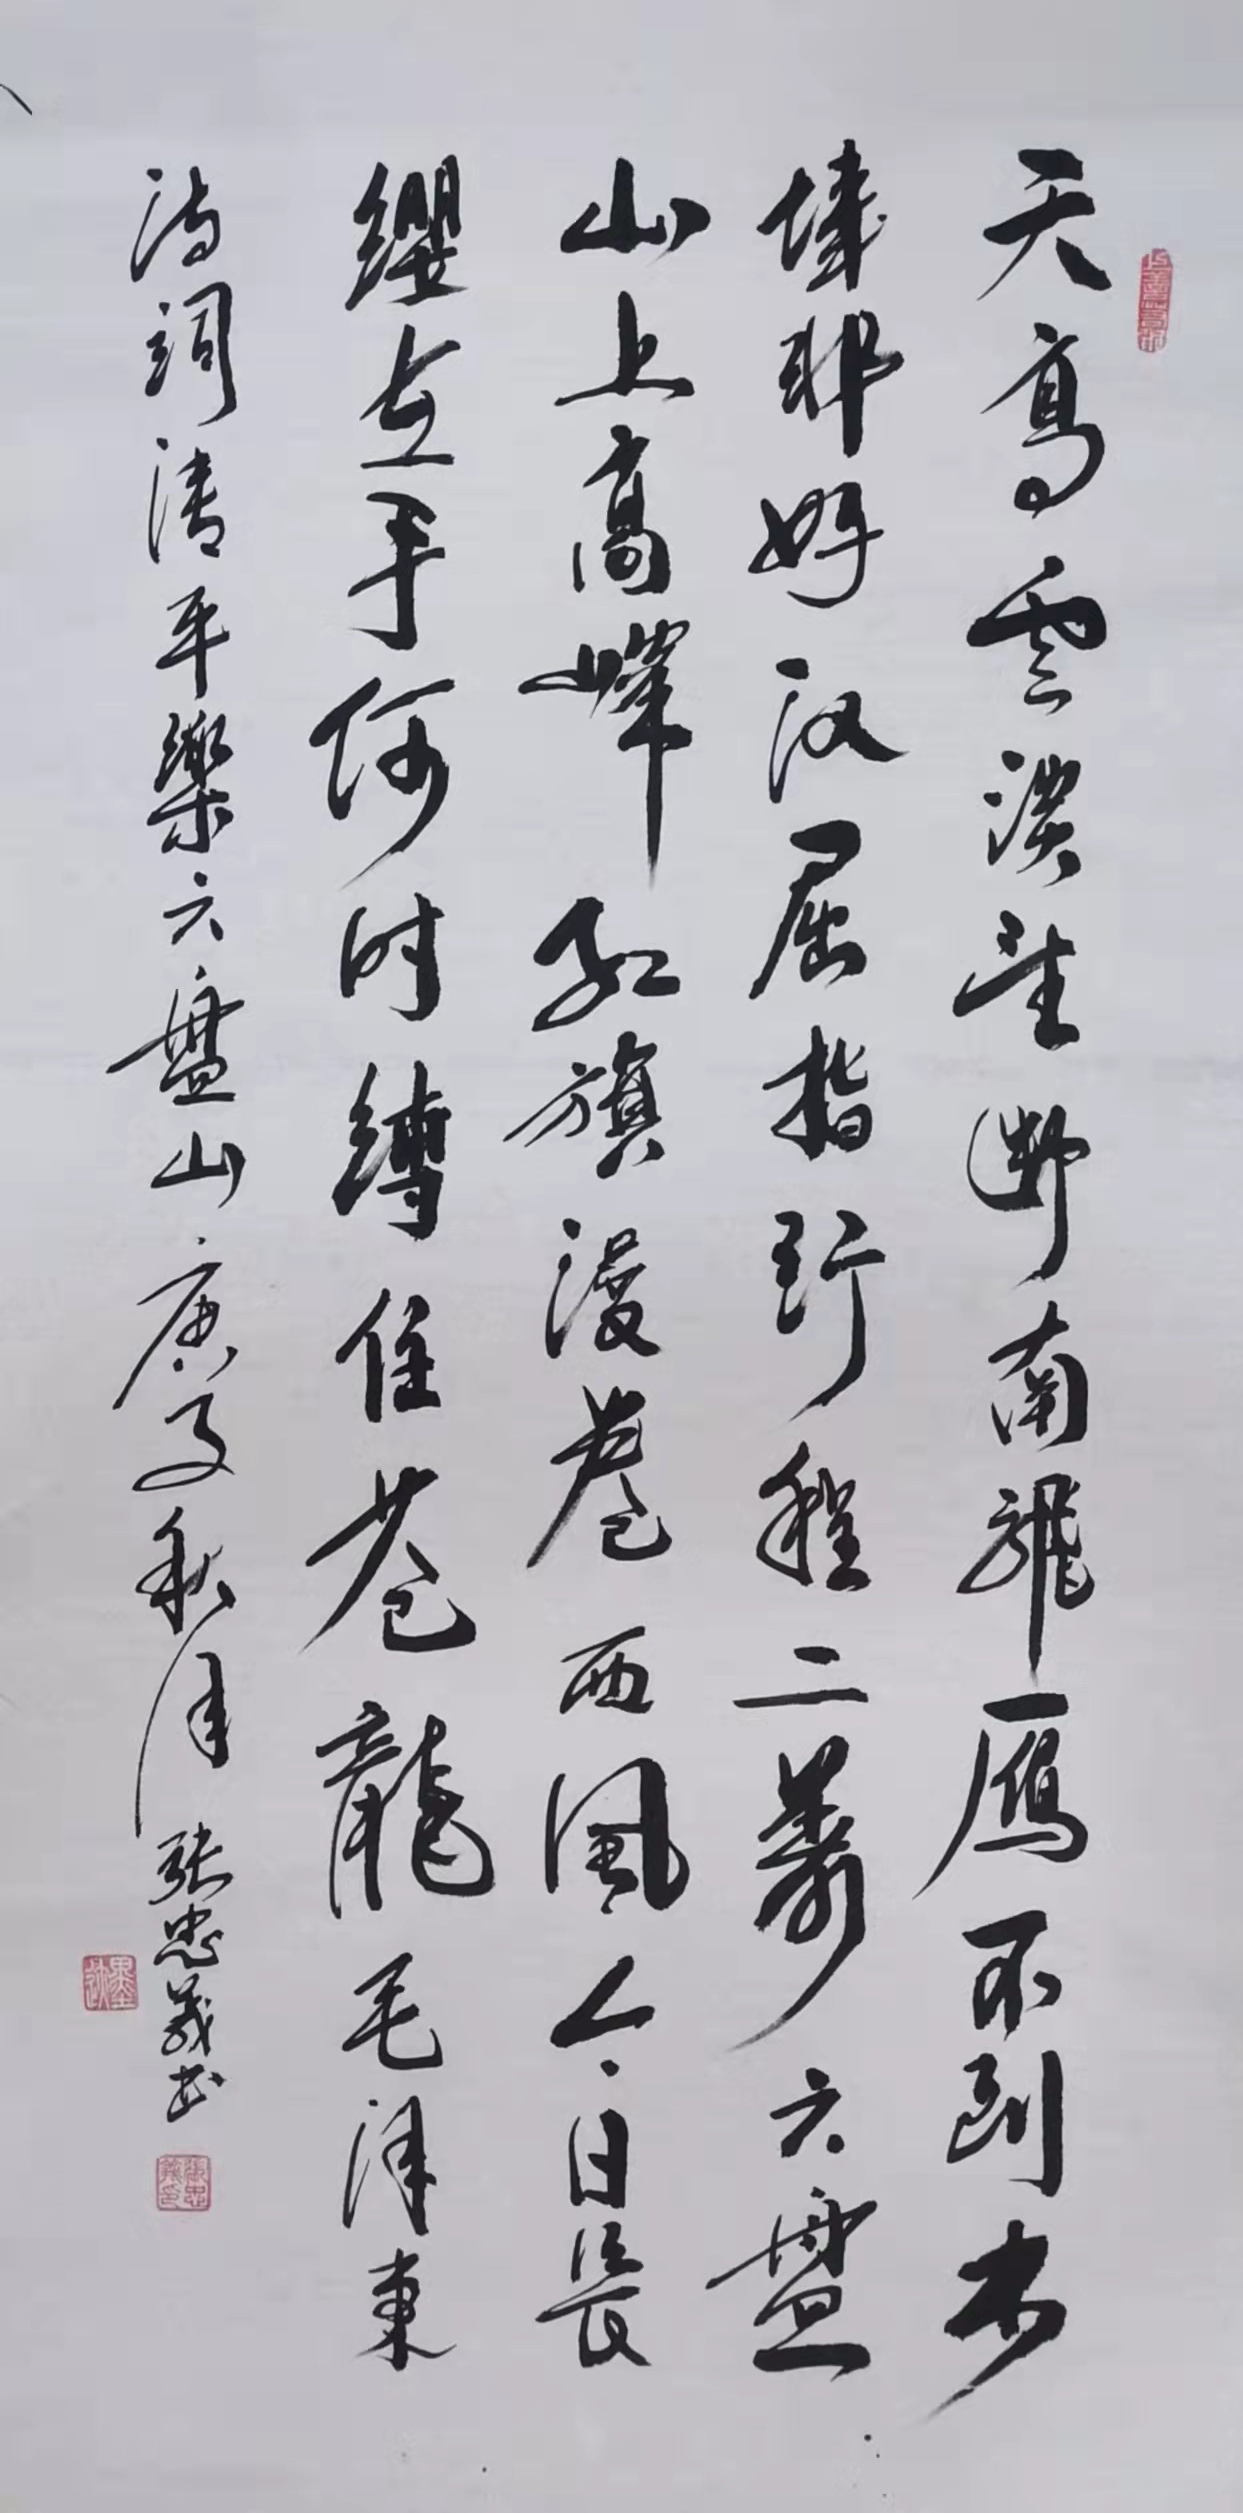 天高雲淡望斷南飛雁不到长
城非好汉屈指行程二萬六盤
山上高峰红旗漫卷西風今日長
纓在手何时縛住苍龍毛泽東
诗詞清平樂六盤山庚子秋月張忠義书
張忠義印